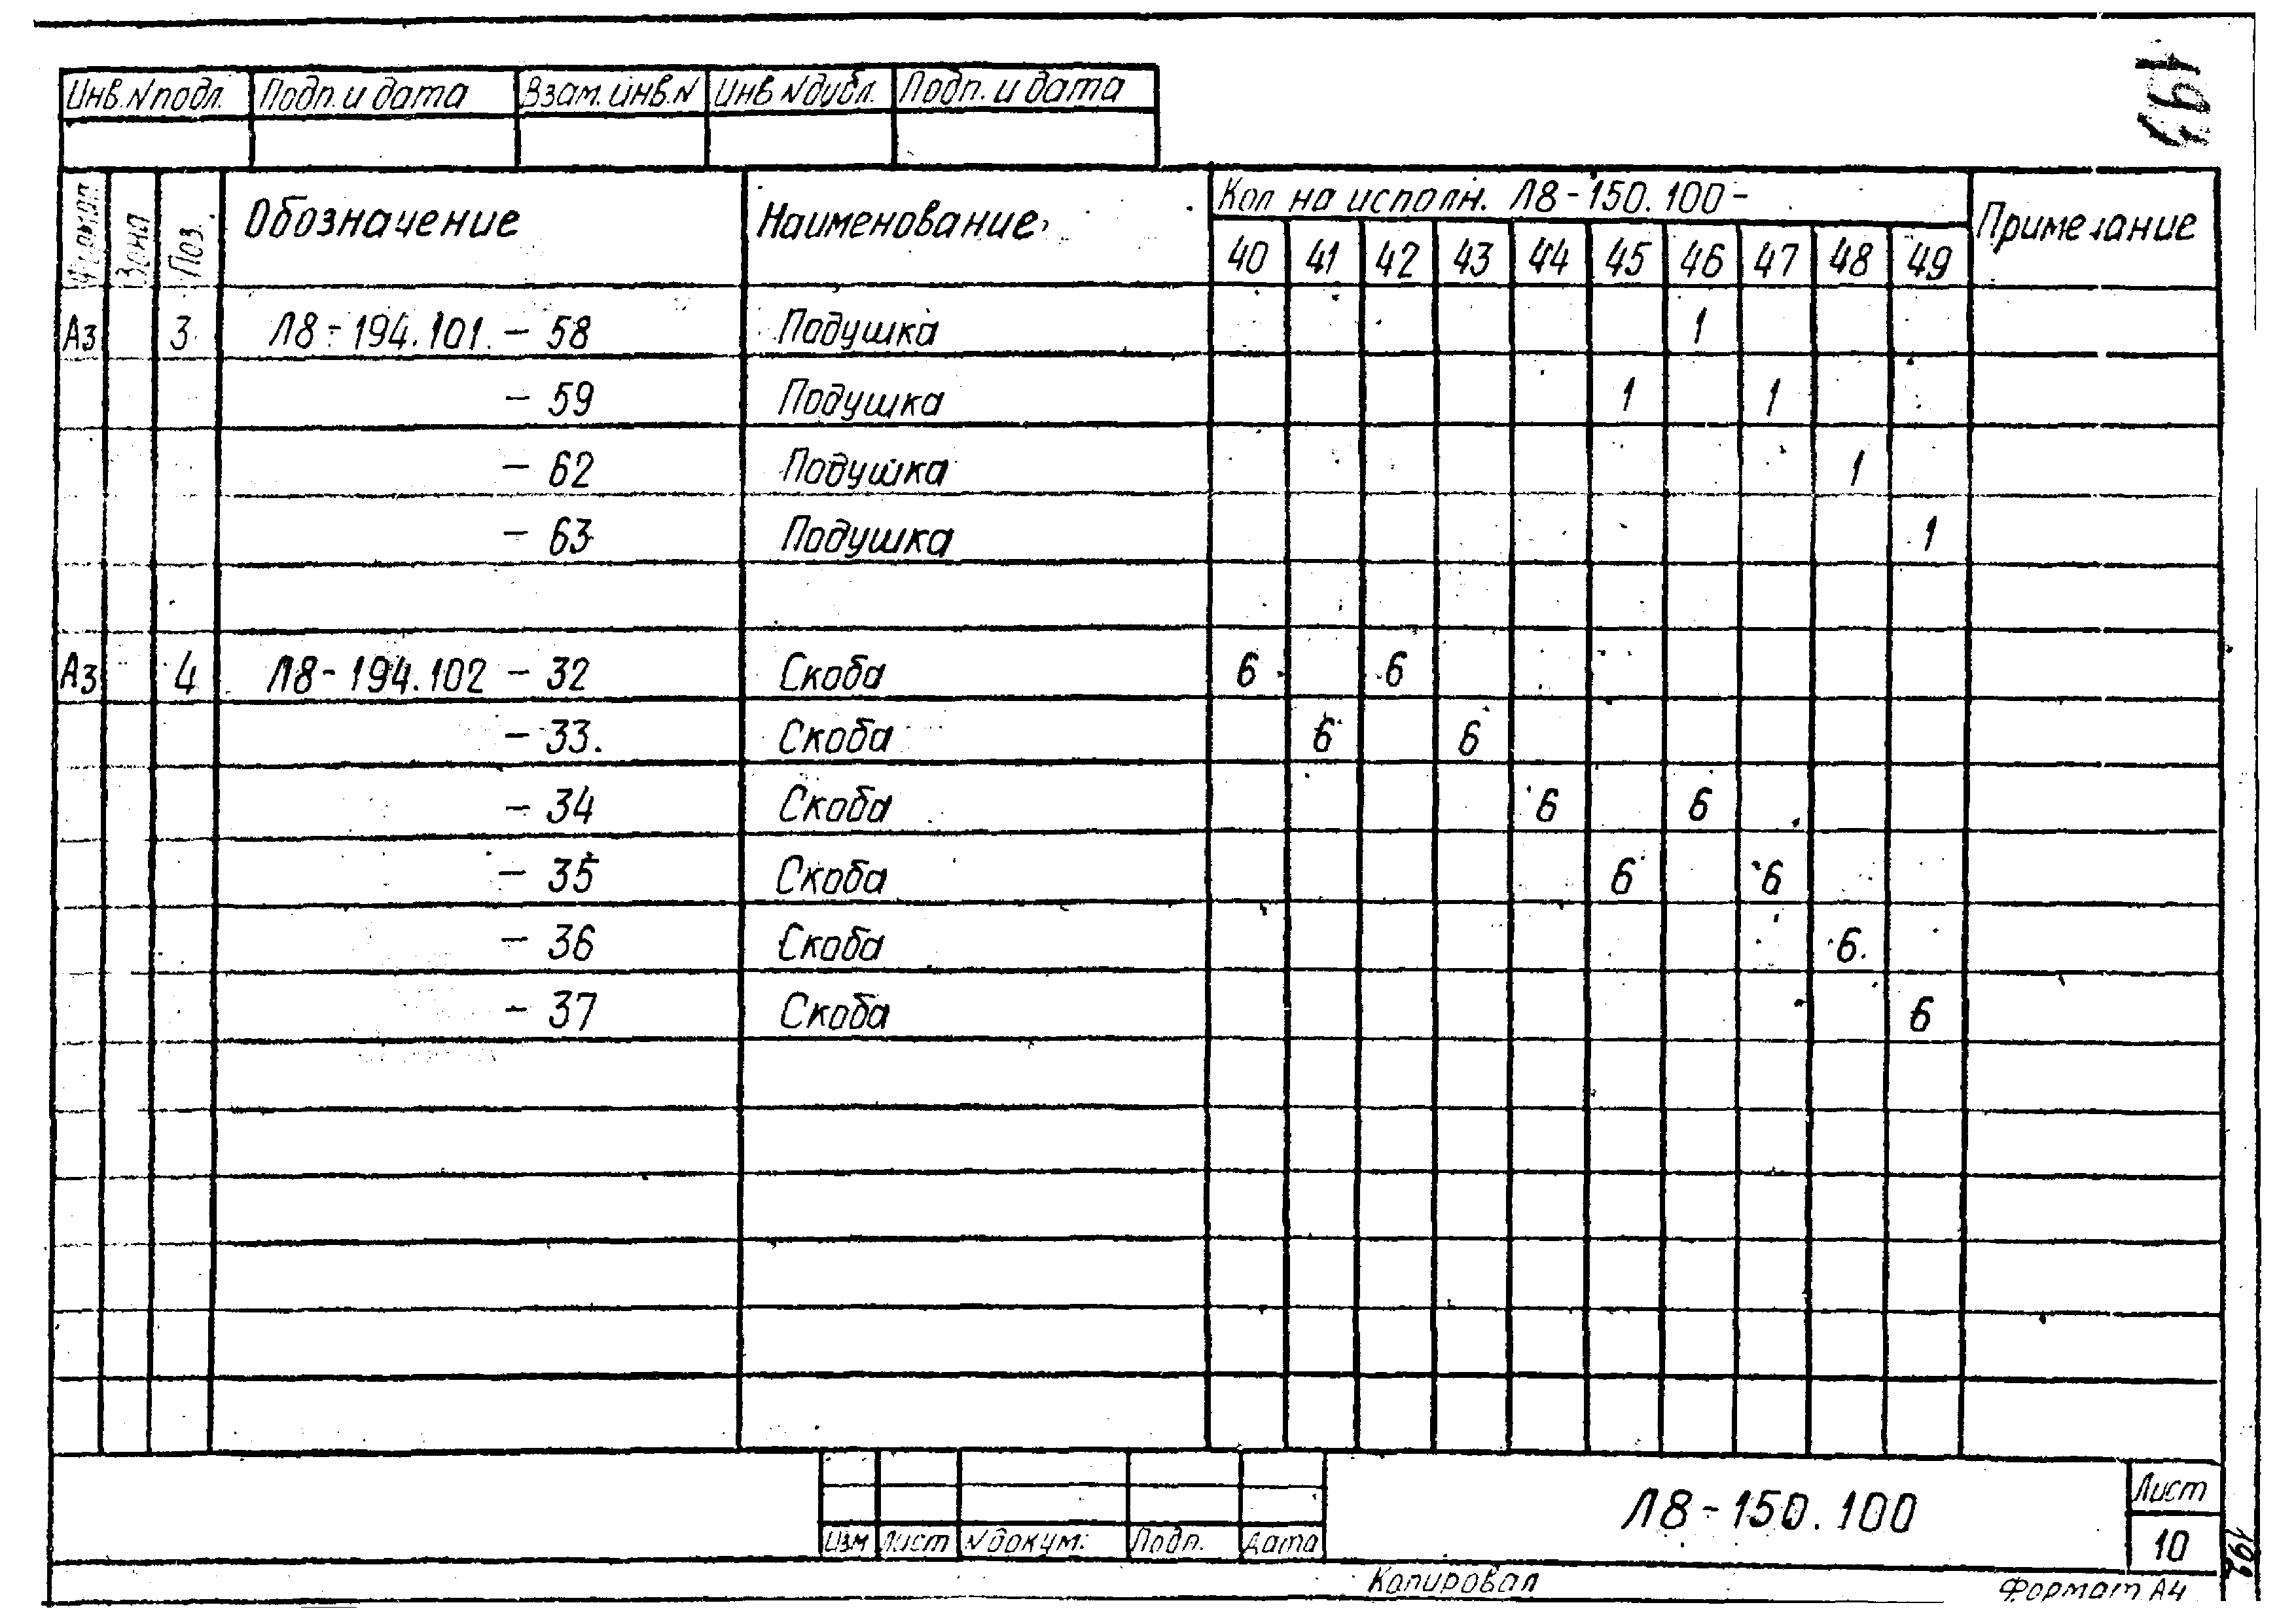 193
Инв.N подл. Подп. и дата Взам. инв. N Инв N дубл. Подп. и дата
Формат Зона Поз. Обозначение Наименование Кол на исполн. Л8-150.100- Примечание
40 41 42 43 44 45 46 47 48 49
А3 3 Л8-194.101 - 58 Подушка 1
- 59 Подушка 1 1
- 62 Подушка 1
- 63 Подушка 1
А3 4 Л8-194.102 - 32 Скоба 6 6
- 33. Скоба 6 6
- 34 Скоба 6 6
- 35 Скоба 6 6
- 36 Скоба 6
- 37 Скоба 6
Изм Лист N докум. Подп. Дата Л8-150.100 Лист
10
Копировал Формат А4
192